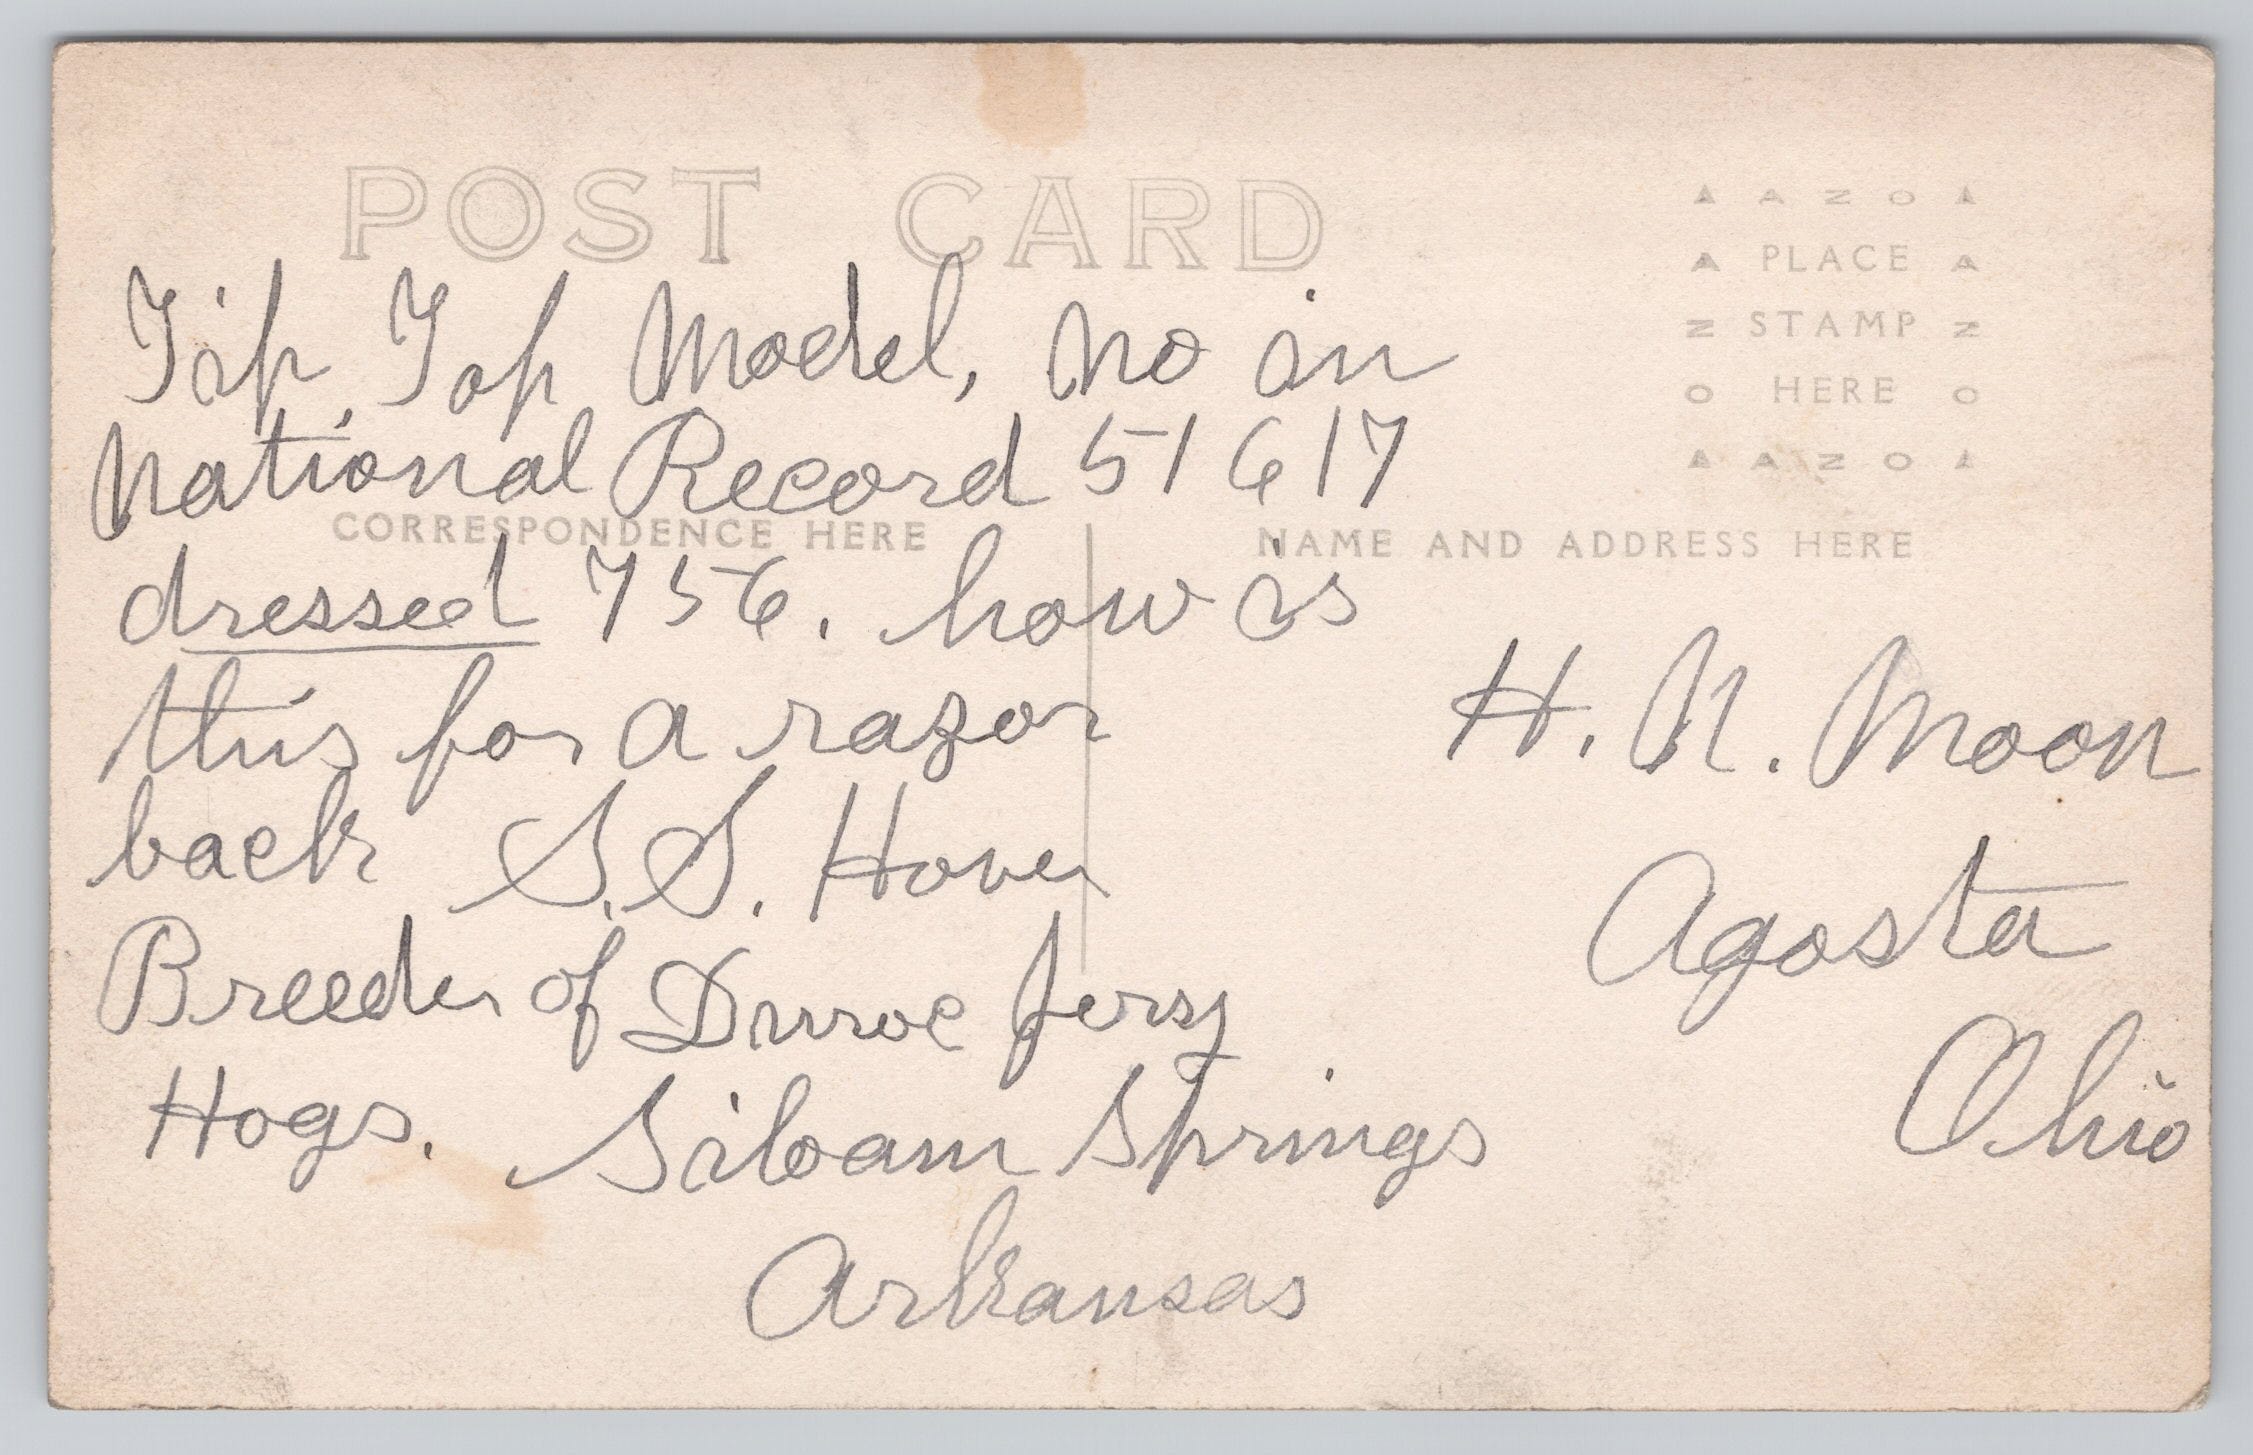 POST CARD
AZO
PLACE
STAMP
HERE
AZO
Tip Top Model, No in
National Record 51617
CORRESPONDENCE HERE
NAME AND ADDRESS HERE
dressed 756. how is
this for a razor
back S. S. Hover
Breeder of Duroc Jersy
Hogs. Siloam Springs
Arkansas
H. N. Moon
Agosta
Ohio